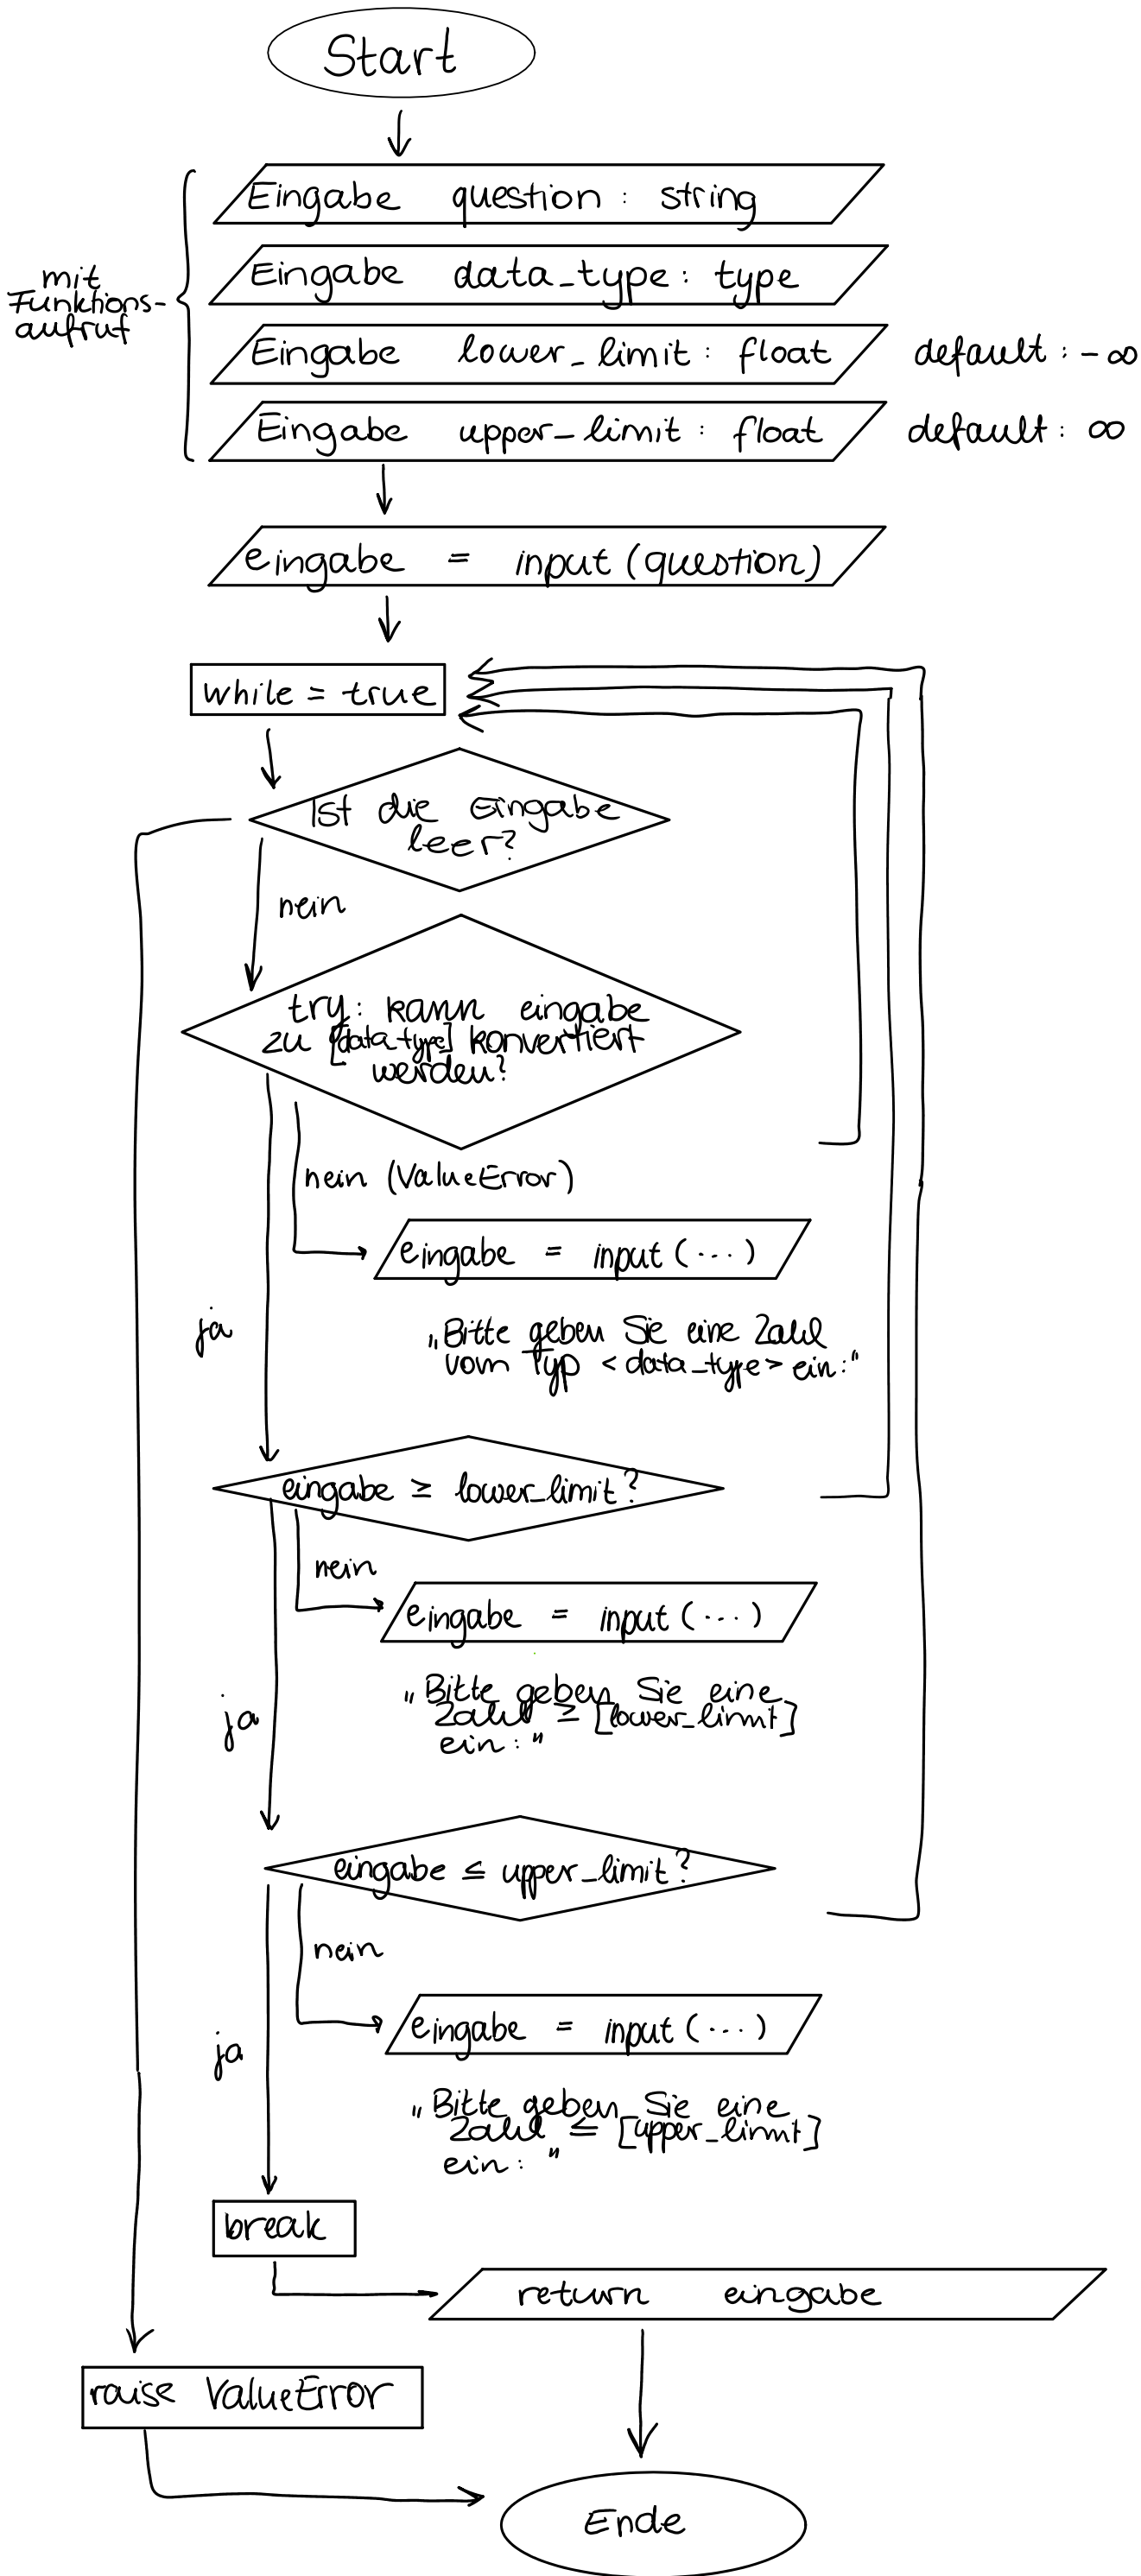 Start
Eingabe question : string
mit
Funktions-
aufruf
Eingabe data_type : type
Eingabe lower_limit : float default : - ∞
Eingabe upper_limit : float default : ∞
eingabe = input (question)
while = true
Ist die Eingabe
leer?
nein
try: kann eingabe
zu [data_type] konvertiert
werden?
nein (ValueError)
eingabe = input (...)
ja
„Bitte geben Sie eine Zahl
vom Typ <data_type> ein:"
eingabe ≥ lower_limit?
nein
eingabe = input (...)
„Bitte geben Sie eine
Zahl ≥ [lower_limit]
ein : "
ja
eingabe ≤ upper_limit?
nein
eingabe = input (...)
ja
„Bitte geben Sie eine
Zahl ≤ [upper_limit]
ein : "
break
return eingabe
raise ValueError
Ende